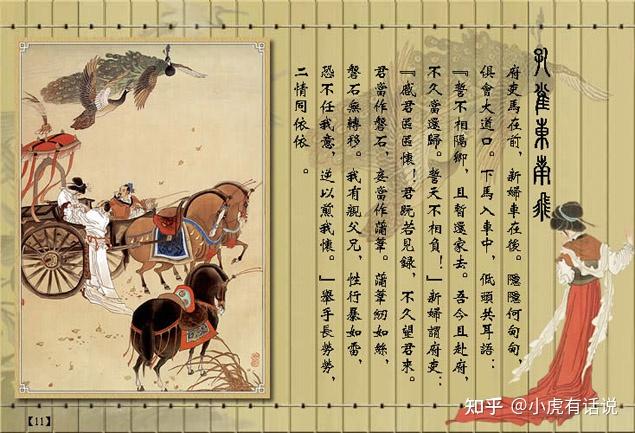 孔雀東南飛
府吏馬在前，新婦車在後。隱隱何甸甸，
俱會大道口。下馬入車中，低頭共耳語：
『誓不相隔卿，且暫還家去。吾今且赴府，
不久當還歸。誓天不相負！』新婦謂府吏：
『感君區區懷！君既若見錄，不久望君來。
君當作磐石，妾當作蒲葦。蒲葦紉如絲，
磐石無轉移。我有親父兄，性行暴如雷，
恐不任我意，逆以煎我懷。』舉手長勞勞，
二情同依依。
【11】
知乎 @小虎有话说